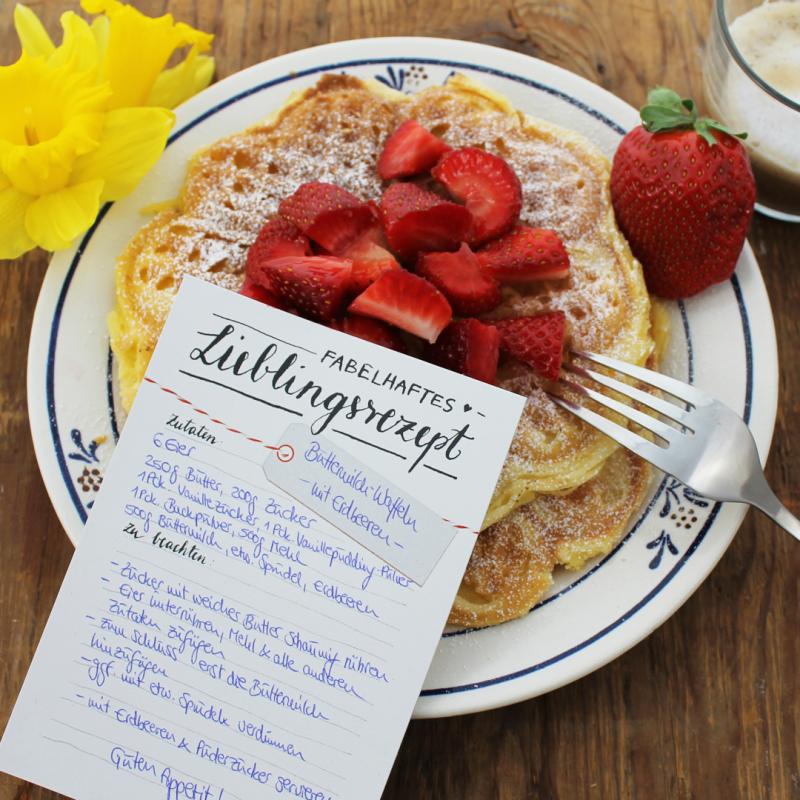 FABELHAFTES
Lieblingsrezept
Buttermilch-Waffeln
- mit Erdbeeren -
Zutaten:
6 Eier
250g Butter, 200g Zucker
1 Pck. Vanillezucker, 1 Pck. Vanillepudding-Pulver
1 Pck. Backpulver, 500g Mehl
500g Buttermilch, etw. Sprudel, Erdbeeren
Zu beachten:
- Zucker mit weicher Butter schaumig rühren
- Eier unterrühren, Mehl & alle anderen
Zutaten zufügen
- zum Schluss erst die Buttermilch
hinzufügen
- ggf. mit etw. Sprudel verdünnen
- mit Erdbeeren & Puderzucker servieren
Guten Appetit!